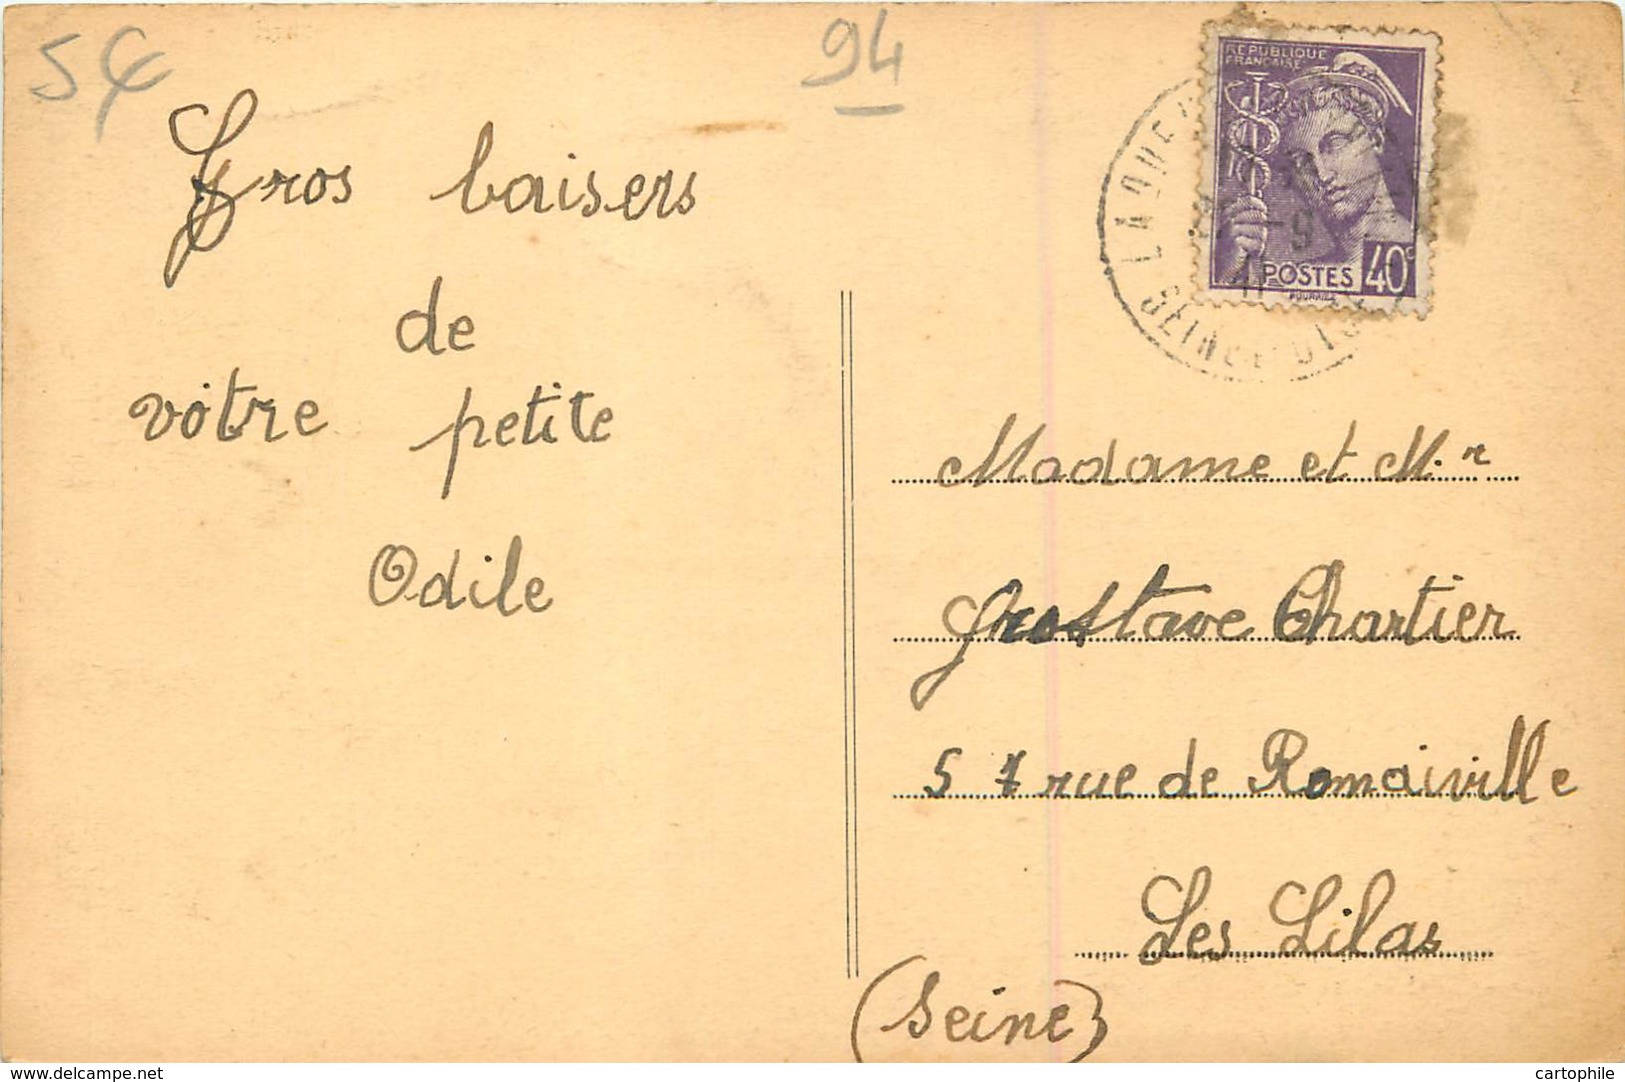 5€
94
Gros baisers
de
vôtre petite
Odile
REPUBLIQUE
FRANCAISE
POSTES 40c
LAQUE
-9
41
SEINE-ET-OISE
Madame et M.r
Gustave Chartier
57 rue de Romainville
Les Lilas
(Seine)
www.delcampe.net
cartophile